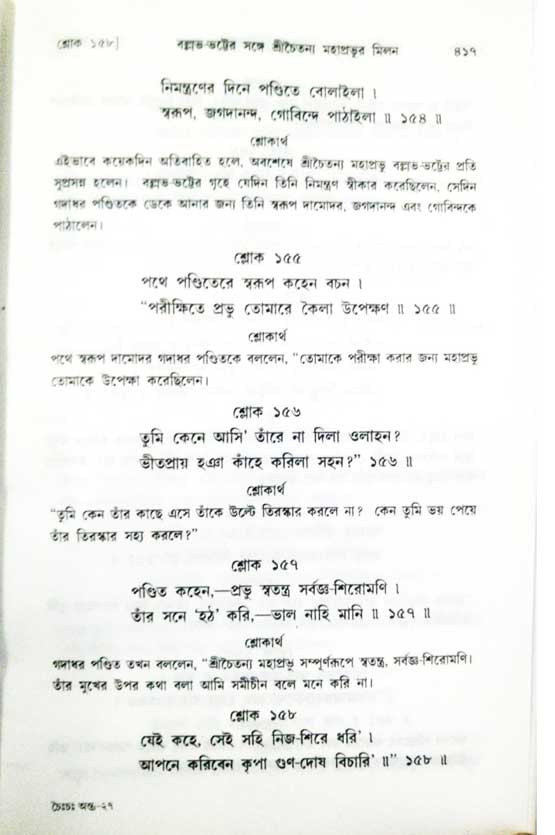 শ্লোক ১৫৮]
বল্লভ-ভট্টের সঙ্গে শ্রীচৈতন্য মহাপ্রভুর মিলন
৪১৭
নিমন্ত্রণের দিনে পণ্ডিতে বোলাইলা ।
স্বরূপ, জগদানন্দ, গোবিন্দে পাঠাইলা ॥ ১৫৪ ॥
শ্লোকার্থ
এইভাবে কয়েকদিন অতিবাহিত হলে, অবশেষে শ্রীচৈতন্য মহাপ্রভু বল্লভ-ভট্টের প্রতি
সুপ্রসন্ন হলেন। বল্লভ-ভট্টের গৃহে যেদিন তিনি নিমন্ত্রণ স্বীকার করেছিলেন, সেদিন
গদাধর পণ্ডিতকে ডেকে আনার জন্য তিনি স্বরূপ দামোদর, জগদানন্দ এবং গোবিন্দকে
পাঠালেন।
শ্লোক ১৫৫
পথে পণ্ডিতেরে স্বরূপ কহেন বচন ।
“পরীক্ষিতে প্রভু তোমারে কৈলা উপেক্ষণ ॥ ১৫৫ ॥
শ্লোকার্থ
পথে স্বরূপ দামোদর গদাধর পণ্ডিতকে বললেন, “তোমাকে পরীক্ষা করার জন্য মহাপ্রভু
তোমাকে উপেক্ষা করেছিলেন।
শ্লোক ১৫৬
তুমি কেনে আসি’ তাঁরে না দিলা ওলাহন?
ভীতপ্রায় হঞা কাঁহে করিলা সহন?” ১৫৬ ॥
শ্লোকার্থ
“তুমি কেন তাঁর কাছে এসে তাঁকে উল্টে তিরস্কার করলে না? কেন তুমি ভয় পেয়ে
তাঁর তিরস্কার সহ্য করলে?”
শ্লোক ১৫৭
পণ্ডিত কহেন,—প্রভু স্বতন্ত্র সর্বজ্ঞ-শিরোমণি ।
তাঁর সনে ‘হঠ’ করি,—ভাল নাহি মানি ॥ ১৫৭ ॥
শ্লোকার্থ
গদাধর পণ্ডিত তখন বললেন, “শ্রীচৈতন্য মহাপ্রভু সম্পূর্ণরূপে স্বতন্ত্র, সর্বজ্ঞ-শিরোমণি।
তাঁর মুখের উপর কথা বলা আমি সমীচীন বলে মনে করি না।
শ্লোক ১৫৮
যেই কহে, সেই সহি নিজ-শিরে ধরি’ ।
আপনে করিবেন কৃপা গুণ-দোষ বিচারি’ ॥” ১৫৮ ॥
চৈঃচঃ অন্ত্য-২৭